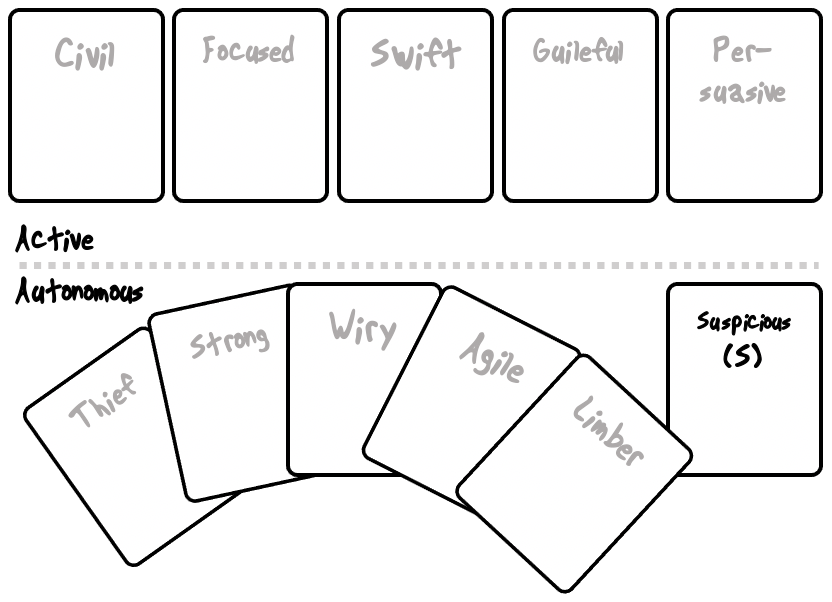 Civil
Focused
Swift
Guileful
Per-
suasive
Active
Autonomous
Thief
Strong
Wiry
Agile
Limber
Suspicious
(S)